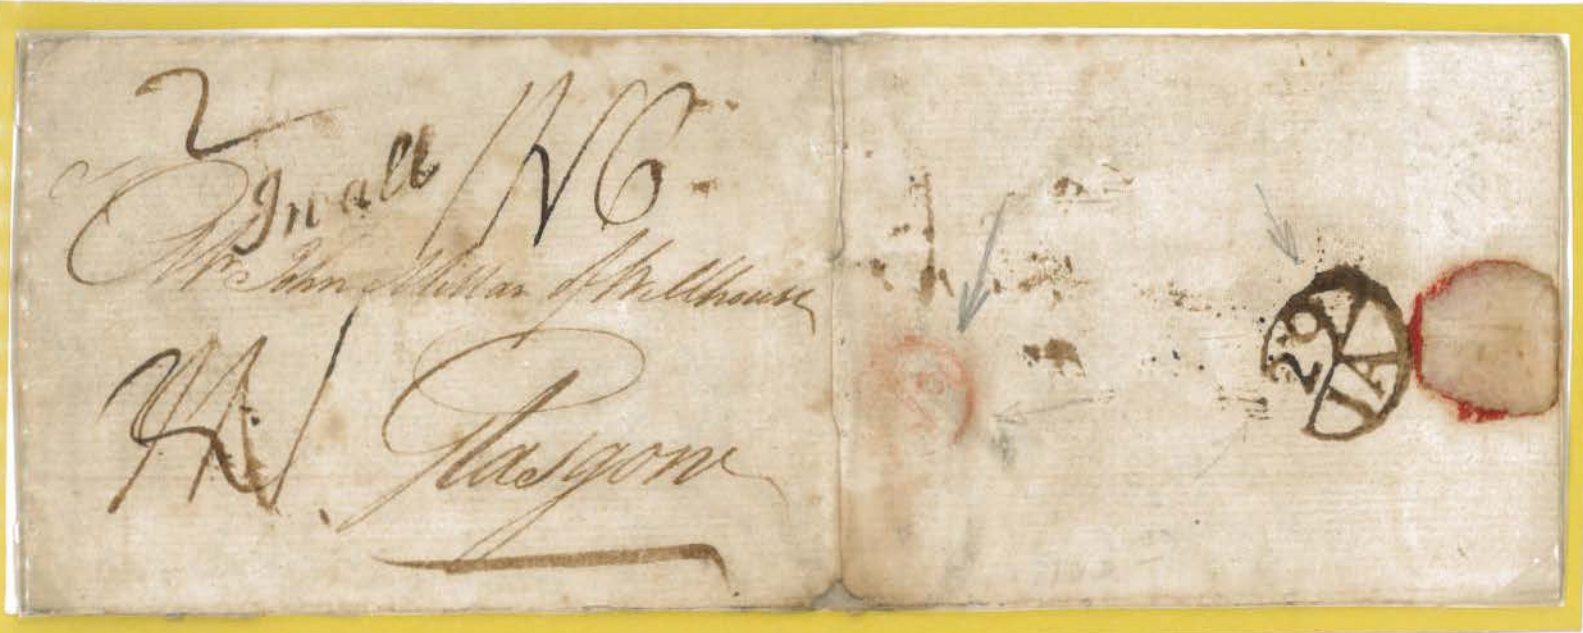 2
In all 1N6
Mr John Millar of Wellhouse
Glasgow
26
IA